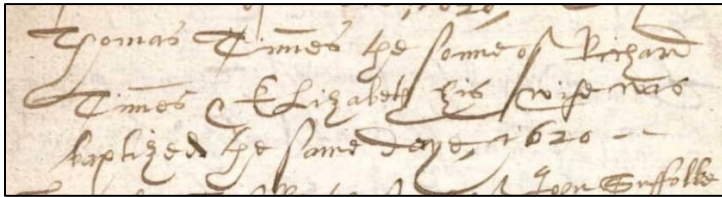 Thomas Times the sonne of Richard
Times & Elizabeth his wife was
baptized the same daye, 1620 --
Suffolke